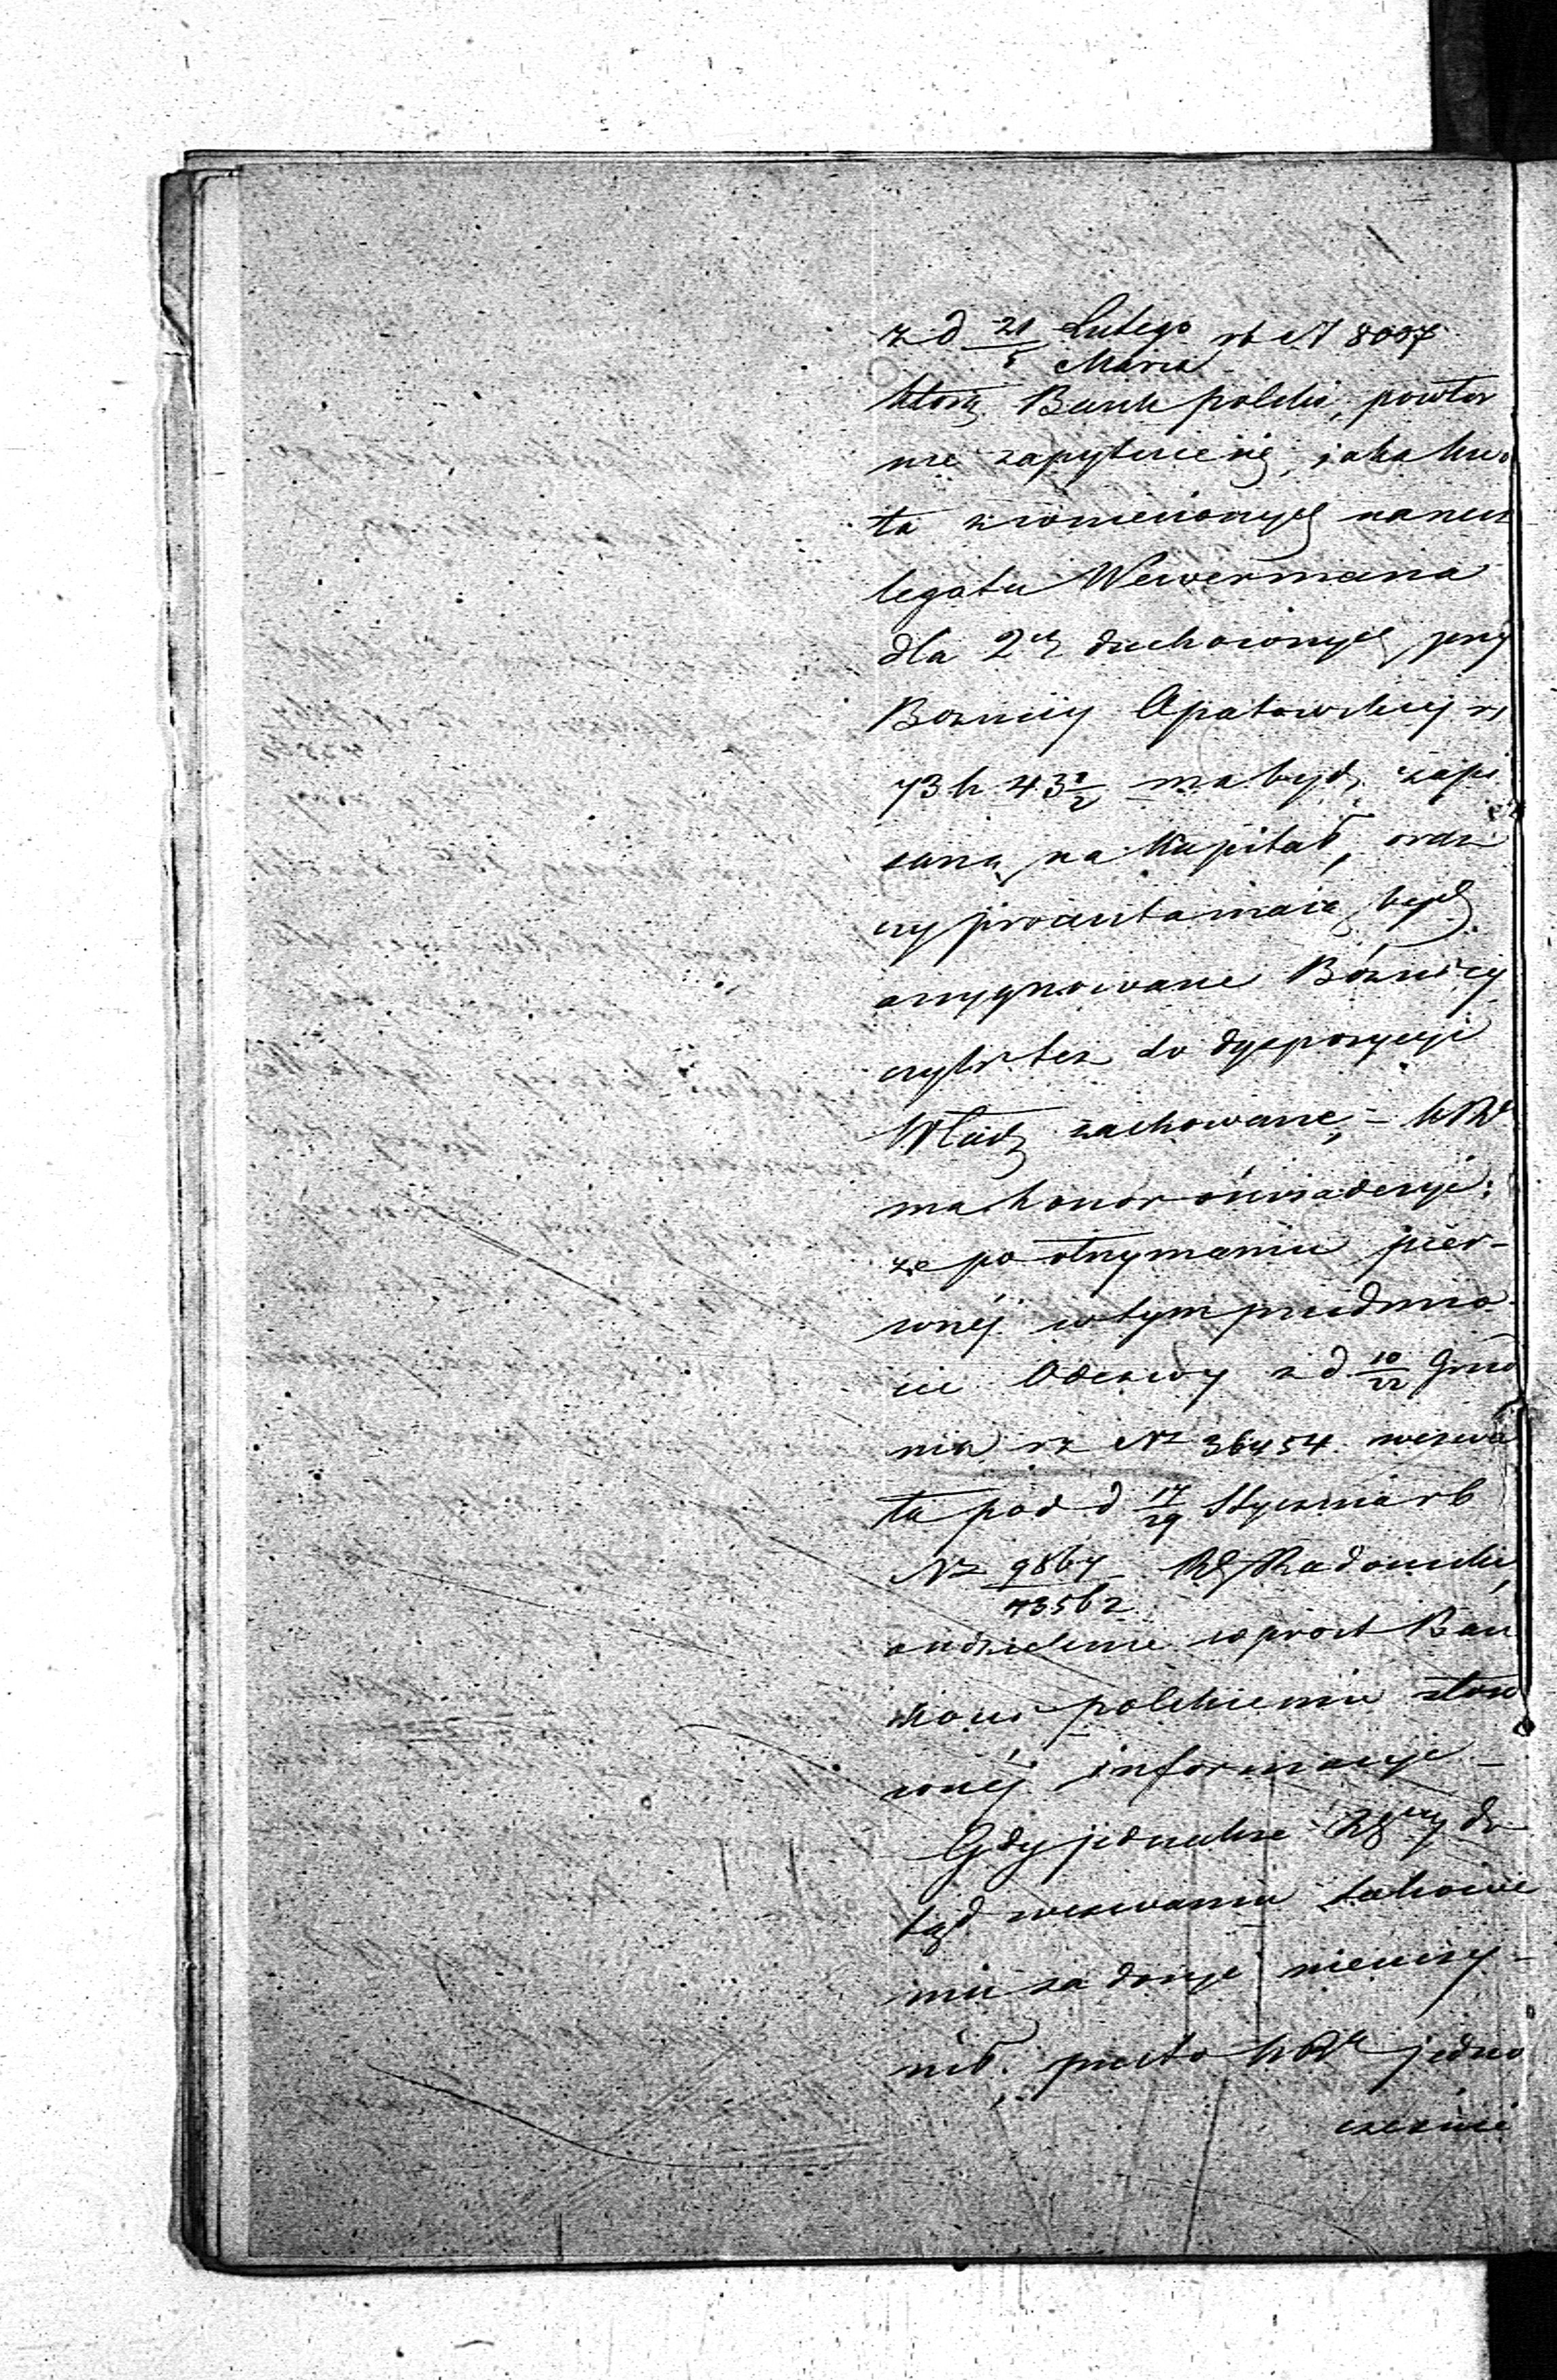 z d 21/5 Lutego/Marca rb N 8007
którą Bank polski, powtór
nie zapytuie się, iaka kwo
ta z wniesionych na
legatu Wewermana
dla 2ch duchownych przy
Boznicy Opatowskiej rs
73 k 43 1/2 ma bydź zapi
saną na Kapitał, oraz
czy procenta maią bydź
assygnowane Boznicy
czyli też do dyspozycyi
Władz zachowane, – KR
ma honor oświadczyć:
że po otrzymaniu pier-
wszéj w tym przedmio-
cie Odezwy z d 10/22 Grud
nia rz Nr 36454 wezwa
ła pod d 17/29 Stycznia rb
Nr 9867/73562 RG Radomski
o udzielenie wprost Ban
kowi polskiemu stoso
wnéj informacyi –
Gdy jednakże RG do
tąd wezwaniu takowe
mu zadosyć nieuczy-
nił, przeto KR jedno
cześnie